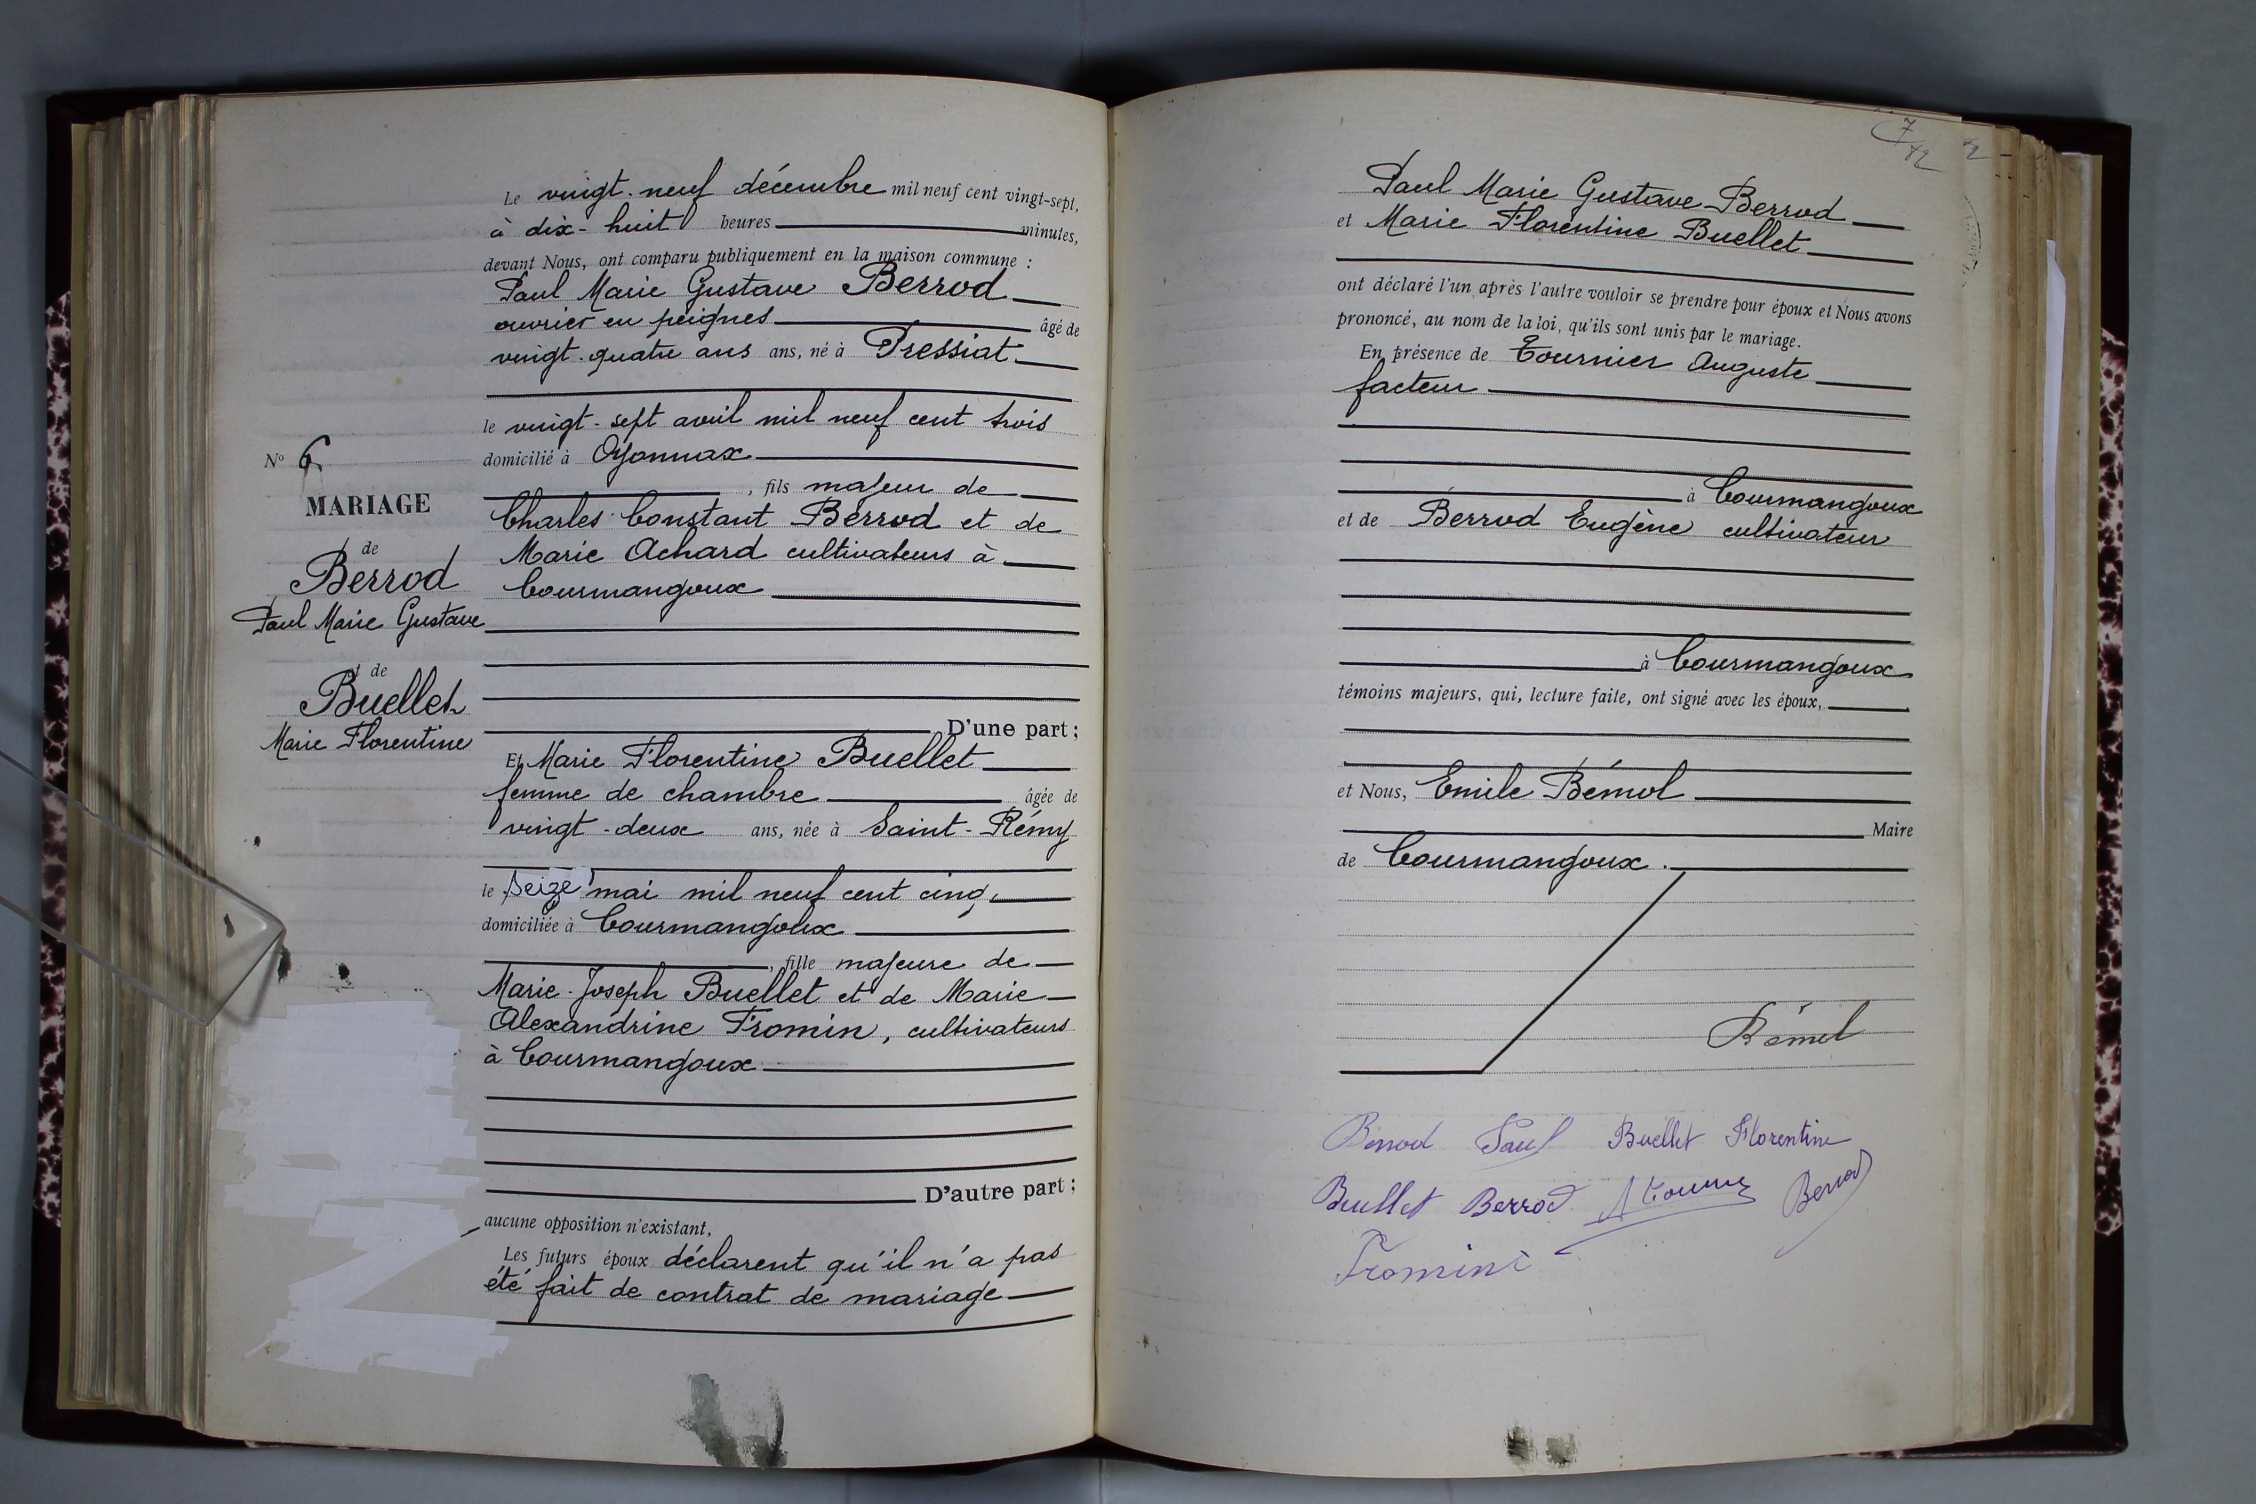 N° 6
MARIAGE
de
Berrod
Paul Marie Gustave
et de
Buellet
Marie Florentine
Le vingt-neuf décembre mil neuf cent vingt-sept,
à dix-huit heures minutes,
devant Nous, ont comparu publiquement en la maison commune :
Paul Marie Gustave Berrod
ouvrier en peignes âgé de
vingt-quatre ans ans, né à Pressiat
le vingt-sept avril mil neuf cent trois
domicilié à Oyonnax
, fils majeur de
Charles Constant Berrod et de
Marie Achard cultivateurs à
Courmangoux
D'une part ;
Et Marie Florentine Buellet
femme de chambre âgée de
vingt-deux ans, née à Saint-Rémy
le seize mai mil neuf cent cinq,
domiciliée à Courmangoux
, fille majeure de
Marie-Joseph Buellet et de Marie
Alexandrine Fromin, cultivateurs
à Courmangoux
D'autre part ;
aucune opposition n'existant,
Les futurs époux déclarent qu'il n'a pas
été fait de contrat de mariage
7
12
Paul Marie Gustave Berrod
et Marie Florentine Buellet
ont déclaré l'un après l'autre vouloir se prendre pour époux et Nous avons
prononcé, au nom de la loi, qu'ils sont unis par le mariage.
En présence de Tournier Auguste
facteur
à Courmangoux
et de Berrod Eugène cultivateur
à Courmangoux
témoins majeurs, qui, lecture faite, ont signé avec les époux,
et Nous, Emile Bémol
Maire
de Courmangoux.
Bémol
Berrod Paul Buellet Florentine
Buellet Berrod Berrod